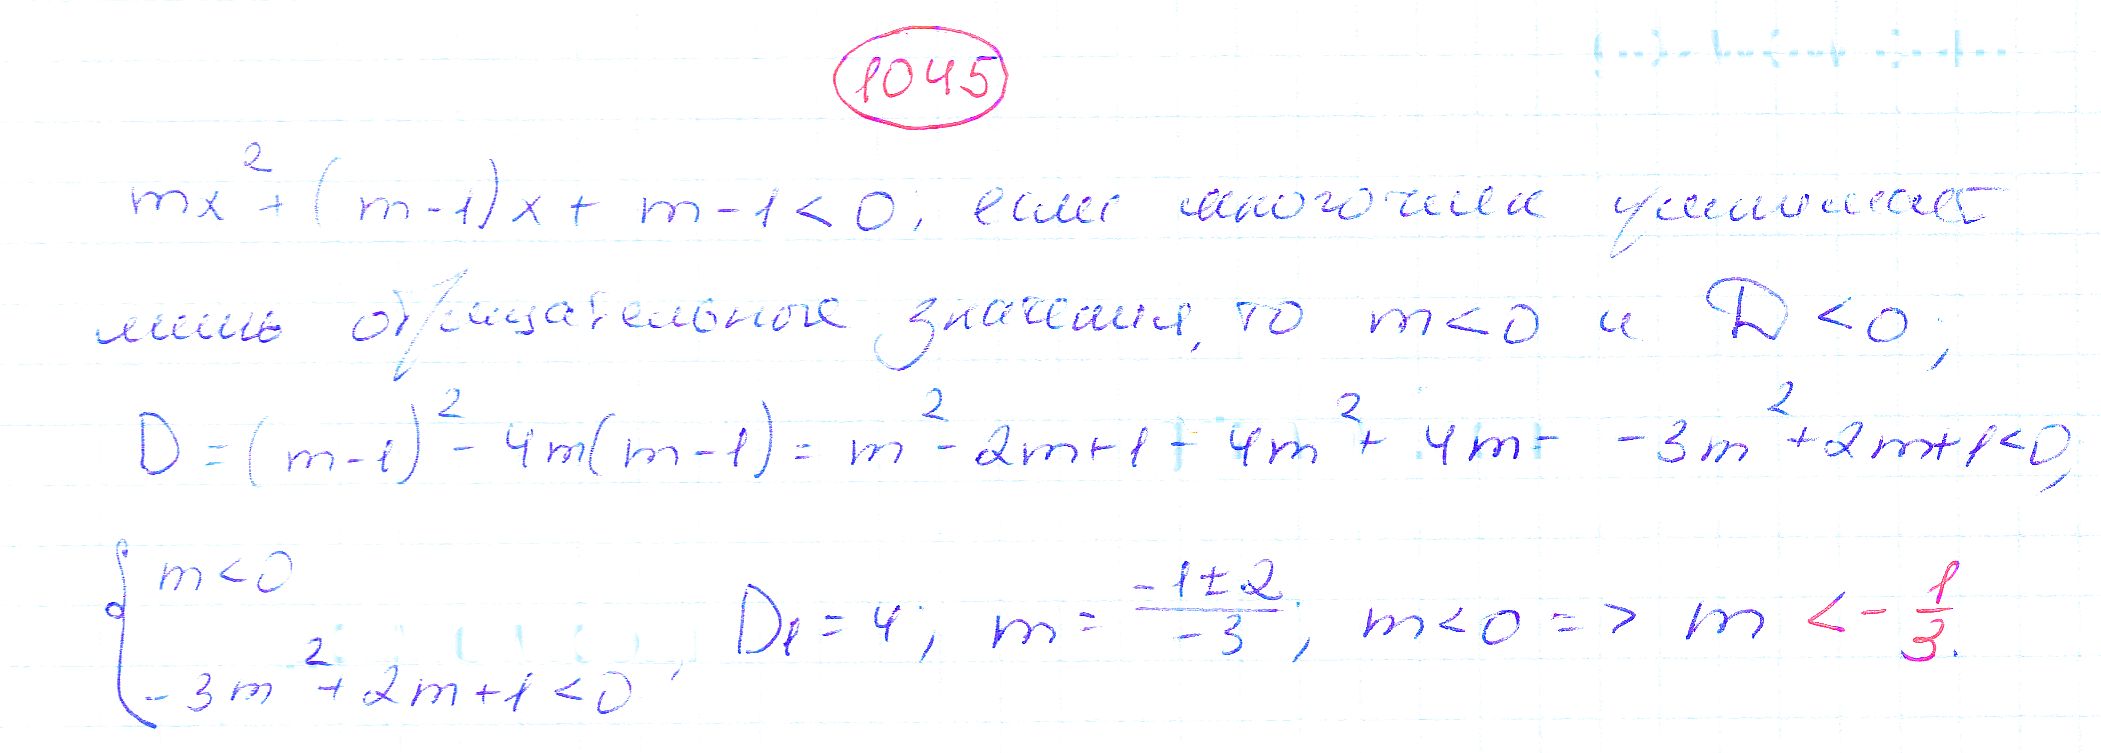 1045
mx² + (m-1)x + m-1 < 0; если многочлен принимает
лишь отрицательные значения, то m<0 и D<0;
D = (m-1)² - 4m(m-1) = m² - 2m+1 - 4m² + 4m = -3m² + 2m+1<0,
{ m<0
-3m² + 2m+1 <0, D₁ = 4; m = (-1±2)/(-3); m<0 => m < -1/3.